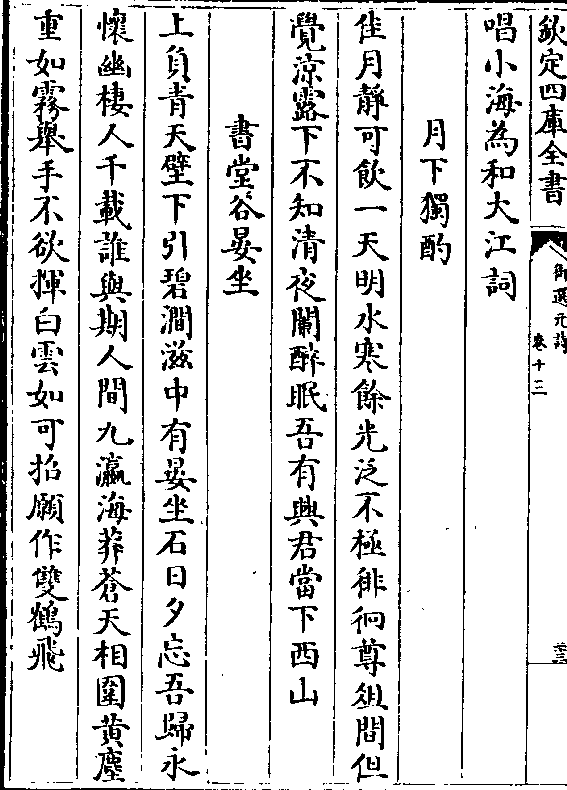 欽定四庫全書
御選元詩
卷十三
唱小海為和大江詞
月下獨酌
佳月靜可飲一天明水寒餘光泛不極徘徊尊俎間但
覺涼露下不知清夜闌醉眠吾有興君當下西山
書堂谷晏坐
上負青天壁下引碧澗滋中有晏坐石日夕忘吾歸永
懷幽棲人千載誰與期人間九瀛海莽蒼天相圍黄塵
重如霧舉手不欲揮白雲如可招願作雙鶴飛